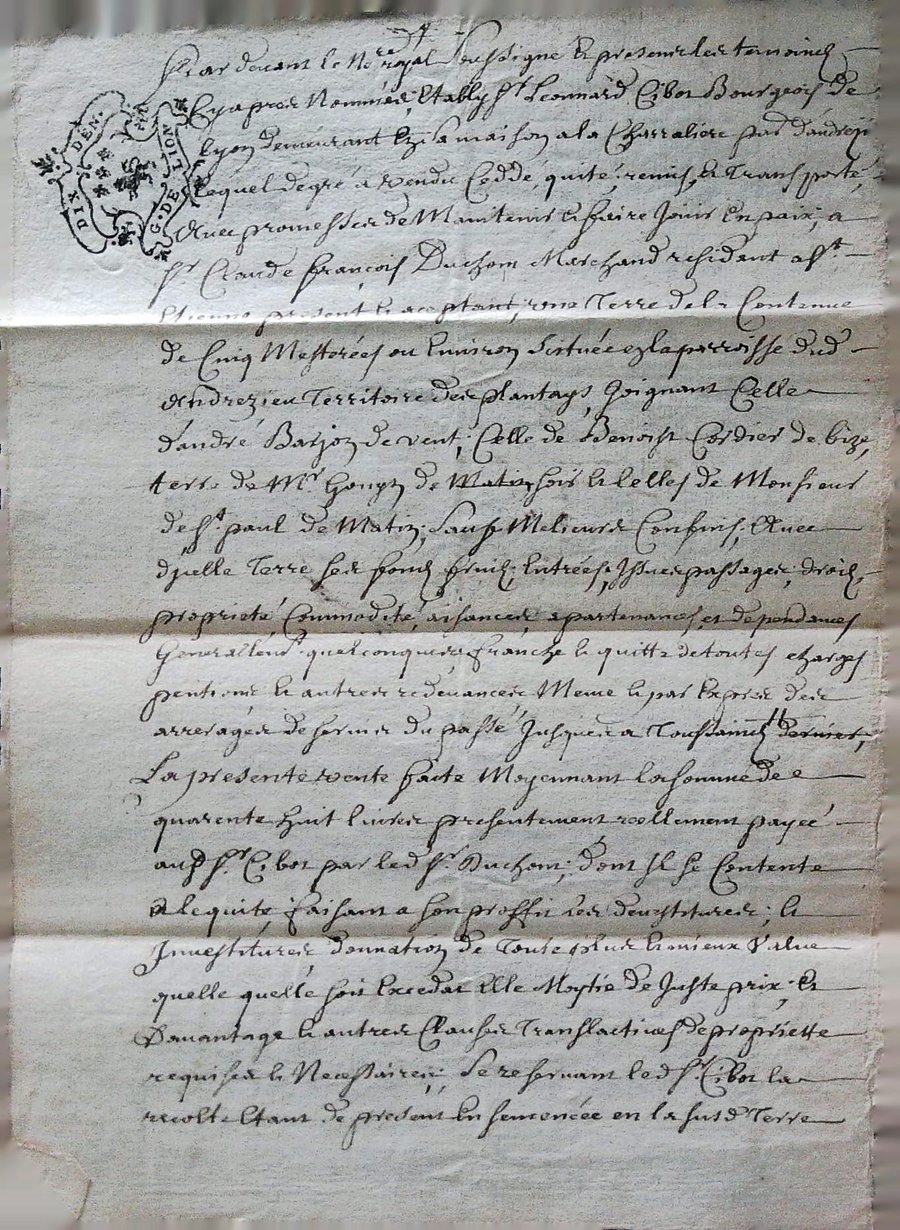 DIX DEN.
G. DE LION
Par devant le No.re royal soussigne et presents les temoins
Cy apres Nommés, Etably Sr. Leonnard Cibot Bourgeois de
Lyon demeurant en sa maison a la Charraliere par d'andrezi
Lequel de gré a vendu Ceddé, quité, remis, et Transporté,
Avec promesses de Maintenir et faire Jouir en paix, a
Sr. Claude françois Duchom Marchand residant a St.
Etienne present et aceptant, une Terre de la Contenue
de Cinq Mesterées ou Environ Scituée en la parroisse dud
Andrezieu Territoire des plantays, Joignant Celle
d'andré Barjon de vent, Celle de Benoist Cordier de bize,
terre de Mr. Gonyn de Matin soir et Celles de Monsieur
de St. paul de Matin, Sauf Melieurs Confins, Avec
dicelle Terre ses fonds fruits, Entrées, Issues passages, droits,
proprieté, Commodité, aisances, apartenances, et dependances
Generallemt. quelconques, franche et quitte de toutes charges
pentions et autres redevances Meme et par Exprés des
arrerages de servis du passé Jusques a Toussaincts dernier,
La presente vente faite Moyennant la somme de
quarente huit livres presentement reellement payée
aud Sr. Cibot par led Sr. Duchom, dont Il se Contente
et le quite, faisant a son proffit les devestitures, et
Investitures donnation de Toute plus et mieux Value
quelle quelle soit Excedat Elle Moytié de Juste prix, et
Davantage et autres Clauses Translactives de propriette
requises et Necessaires, Se reservant led Sr. Cibot la
recolte Etant de present En semencée en la susd Terre